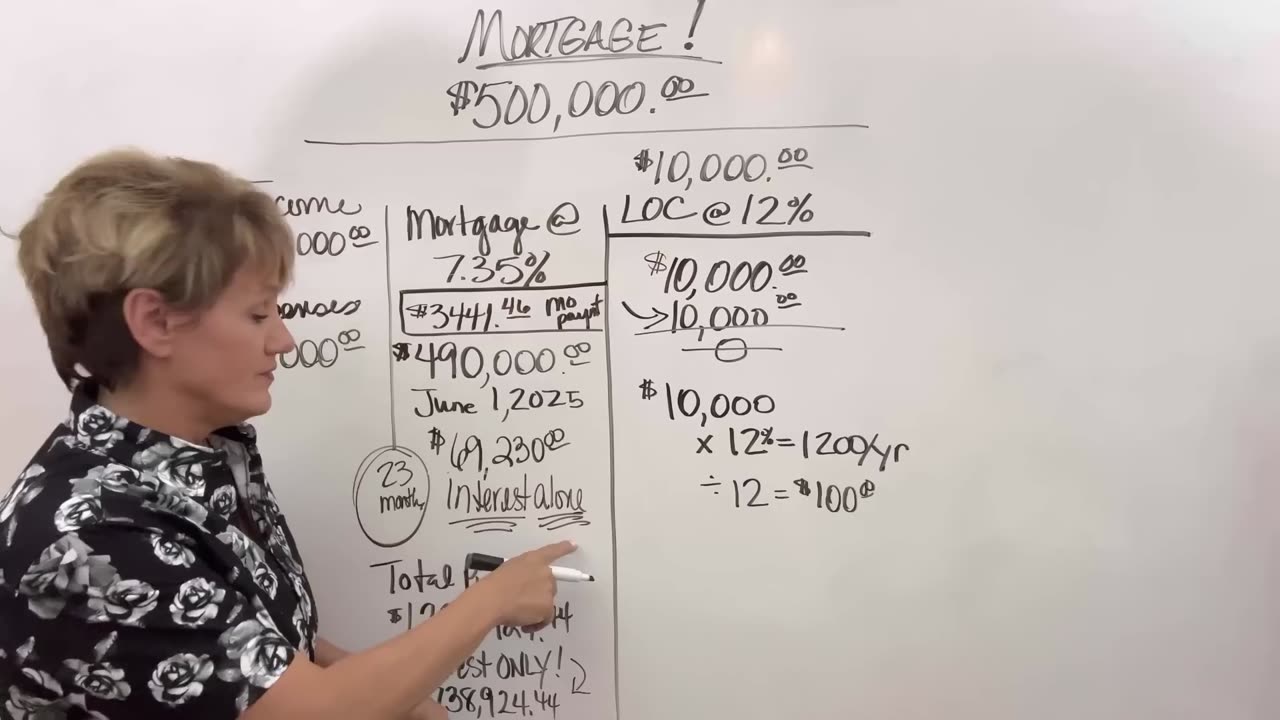 MORTGAGE!
$500,000.00
000 00
000 00
Mortgage @
7.35%
$3441.46 mo paymt
$490,000.00
June 1, 2025
$69,230 00
23 months
interest alone
Total
ONLY!
38,924.44
$10,000.00
LOC @ 12%
$10,000.00
10,000 00
0
$10,000
x 12% = 1200/yr
÷ 12 = $100 00